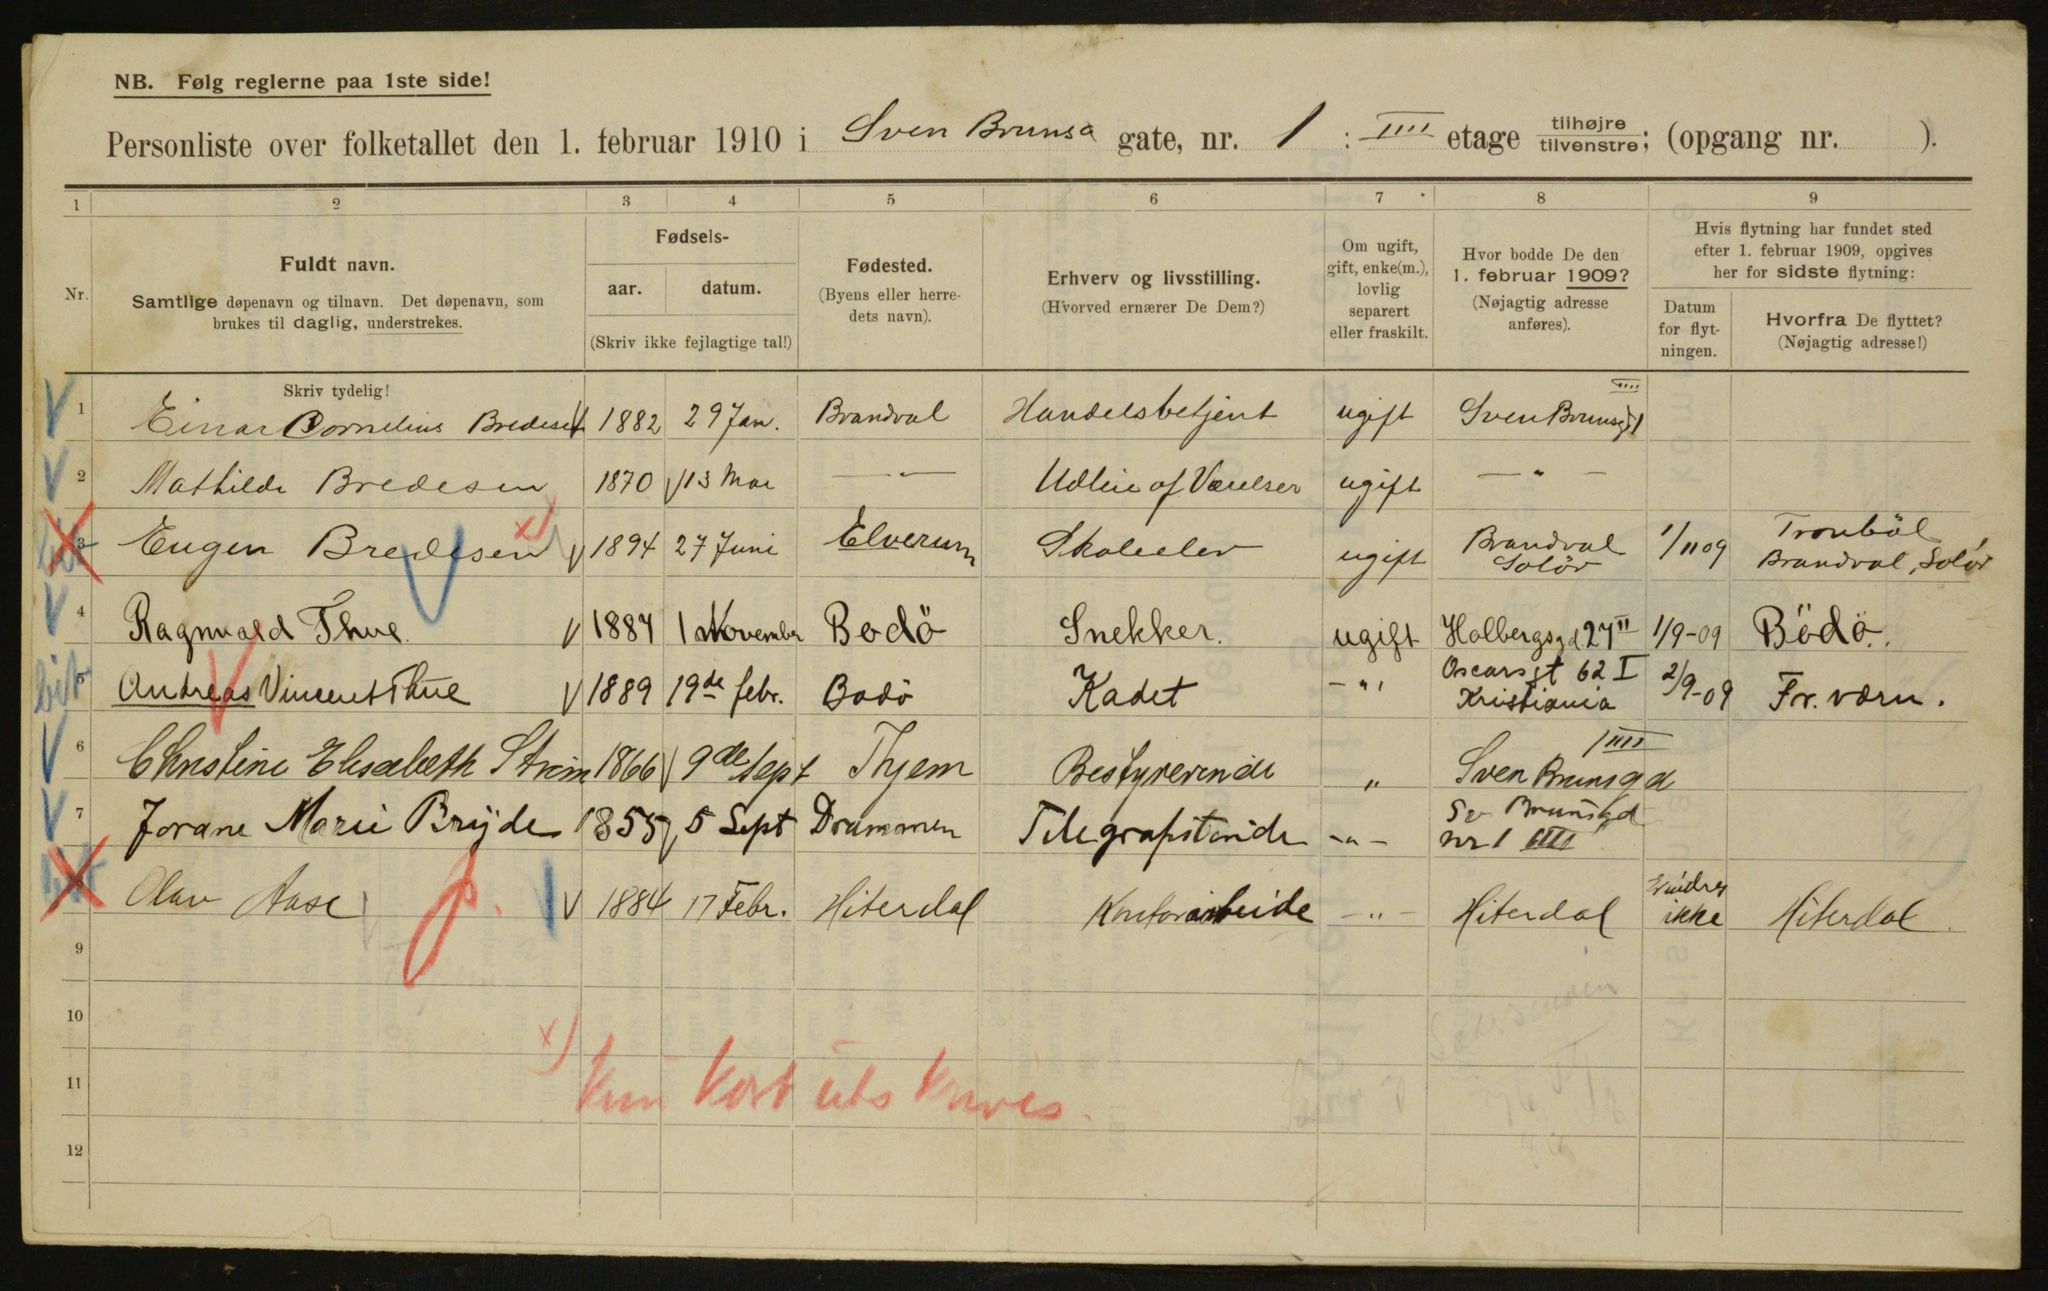 NB. Følg reglerne paa 1ste side!
Personliste over folketallet den 1. februar 1910 i Sven Brunsa gate, nr. 1 : IIII etage tilhøjre tilvenstre; (opgang nr. ).
1 2 3 4 5 6 7 8 9
Nr.
Fuldt navn.
Samtlige døpenavn og tilnavn. Det døpenavn, som
brukes til daglig, understrekes.
Skriv tydelig!
Fødsels-
aar. datum.
(Skriv ikke fejlagtige tal!)
Fødested.
(Byens eller herre-
dets navn).
Erhverv og livsstilling.
(Hvorved ernærer De Dem?)
Om ugift,
gift, enke(m.),
lovlig
separert
eller fraskilt.
Hvor bodde De den
1. februar 1909?
(Nøjagtig adresse
anføres).
Hvis flytning har fundet sted
efter 1. februar 1909, opgives
her for sidste flytning:
Datum
for flyt-
ningen.
Hvorfra De flyttet?
(Nøjagtig adresse!)
1 Einar Cornelius Bredesen 1882 29 Jan. Brandval Handelsbetjent ugift Sven Brunsgd 1 IIII
2 Mathilde Bredesen 1870 13 Mai — " — Udleie af Værelser ugift — " —
3 Eugen Bredesen x) 1894 27 Juni Elverum Skoleelev ugift Brandval Solör 1/11 09 Trøuböl Brandval, Solör
4 Ragnvald Thue. 1887 1 November Bodö Snekker. ugift Holbergsgd 27 II 1/9-09 Bödö.
5 Andreas Vincent Thue 1889 19de febr. Bodö Kadet - " - Oscarsgt 62 I Kristiania 2/9-09 Fr. værn.
6 Christine Elisabeth Strøm 1866 9de Sept Thjem Bestyrerinde " Sven Brunsgd 1 IIII
7 Jorane Marie Brijde 1855 5 Sept Drammen Telegrafistinde - " - Sv Brunsgd nr 1 IIII
8 Olav Aase 1884 17 Febr. Hiterdal Kontorarbeide - " - Hiterdal Erindres ikke Hiterdal
9
10
11
12
x) Kun kort utskrives.